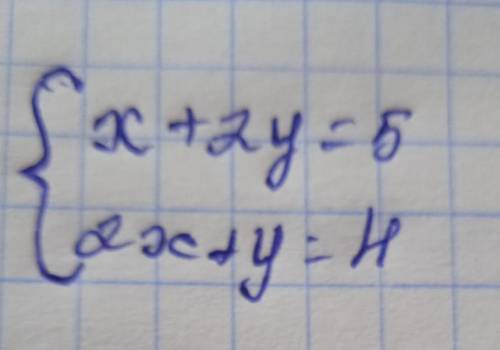 x + 2y = 5
2x + y = 4